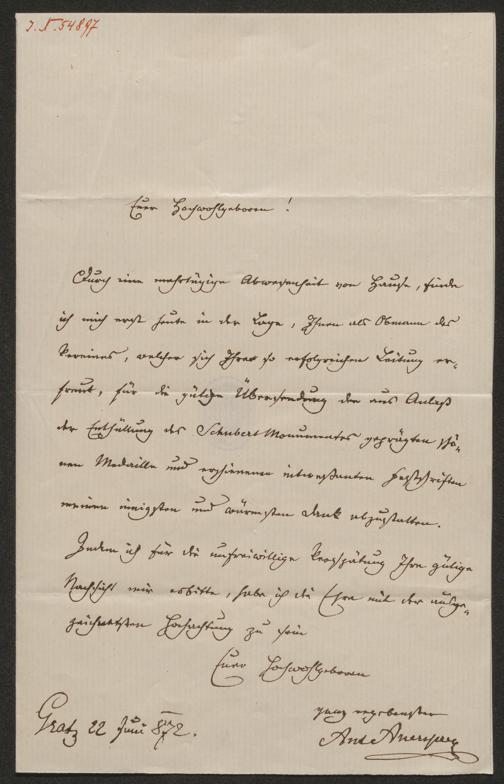 I. N. 54897
Euer Hochwohlgeboren !
Durch eine mehrtägige Abwesenheit von Hause, finde
ich mich erst heute in der Lage, Ihnen als Obmann des
Vereines, welcher sich Ihrer so erfolgreichen Leitung er-
freut, für die gütige Übersendung der aus Anlaß
der Enthüllung des Schubert Monumentes geprägten schö-
nen Medaille und erschienenen interessanten Festschriften
meinen innigsten und wärmsten Dank abzustatten.
Indem ich für die unfreiwillige Verspätung Ihre gütige
Nachsicht mir erbitte, habe ich die Ehre mit der ausge-
zeichnetsten Hochachtung zu sein
Euer Hochwohlgeboren
ganz ergebenster
Gratz 22 Juni 872.
Ant Auersperg